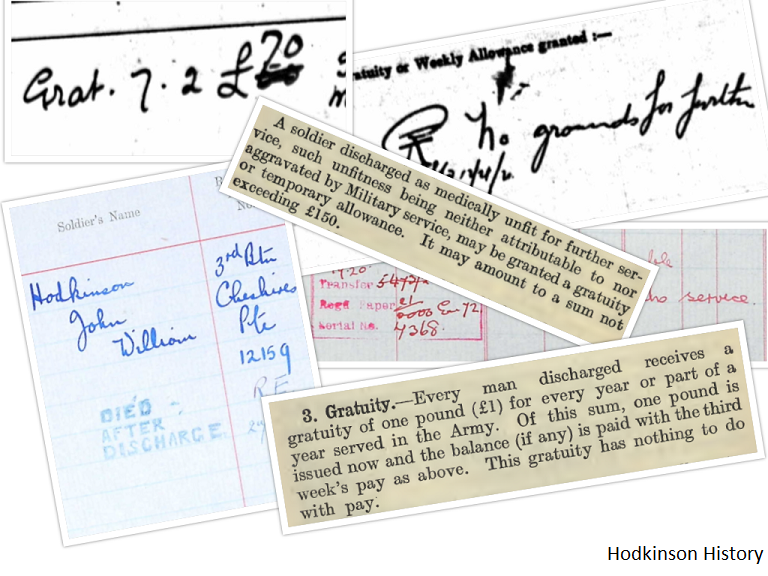 Grat. 7. 2 £70
atuity or Weekly Allowance granted :—
No grounds for further
A soldier discharged as medically unfit for further ser-
vice, such unfitness being neither attributable to nor
aggravated by Military service, may be granted a gratuity
or temporary allowance. It may amount to a sum not
exceeding £150.
Soldier's Name
Hodkinson
John
William
3rd Btn
Cheshires
Pte
12159
DIED
AFTER
DISCHARGE
Transfer
Regd Paper
Serial No. 4368
no service.
3. Gratuity.—Every man discharged receives a
gratuity of one pound (£1) for every year or part of a
year served in the Army. Of this sum, one pound is
issued now and the balance (if any) is paid with the third
week's pay as above. This gratuity has nothing to do
with pay.
Hodkinson History